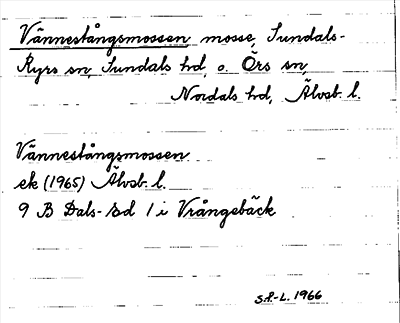 Vännestångsmossen mosse, Sundals-
Ryrs sn, Sundals hd, o. Örs sn,
Nordals hd, Älvsb. l.
Vännestångsmossen
ek (1965) Älvsb. l.
9 B Dals-Ed 1 i Vrångebäck
S.P.-L. 1966